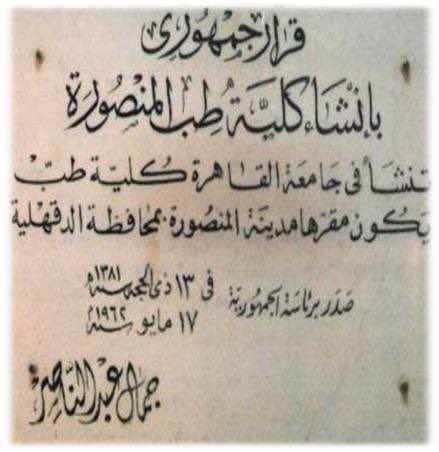 قرار جمهوري
بإنشاء كلية طب المنصورة
تنشأ في جامعة القاهرة كلية طب
يكون مقرها مدينة المنصورة بمحافظة الدقهلية
صدر برئاسة الجمهورية في ١٣ ذي الحجة سنة ١٣٨١ﻫ
١٧ مايو سنة ١٩٦٢م
جمال عبد الناصر